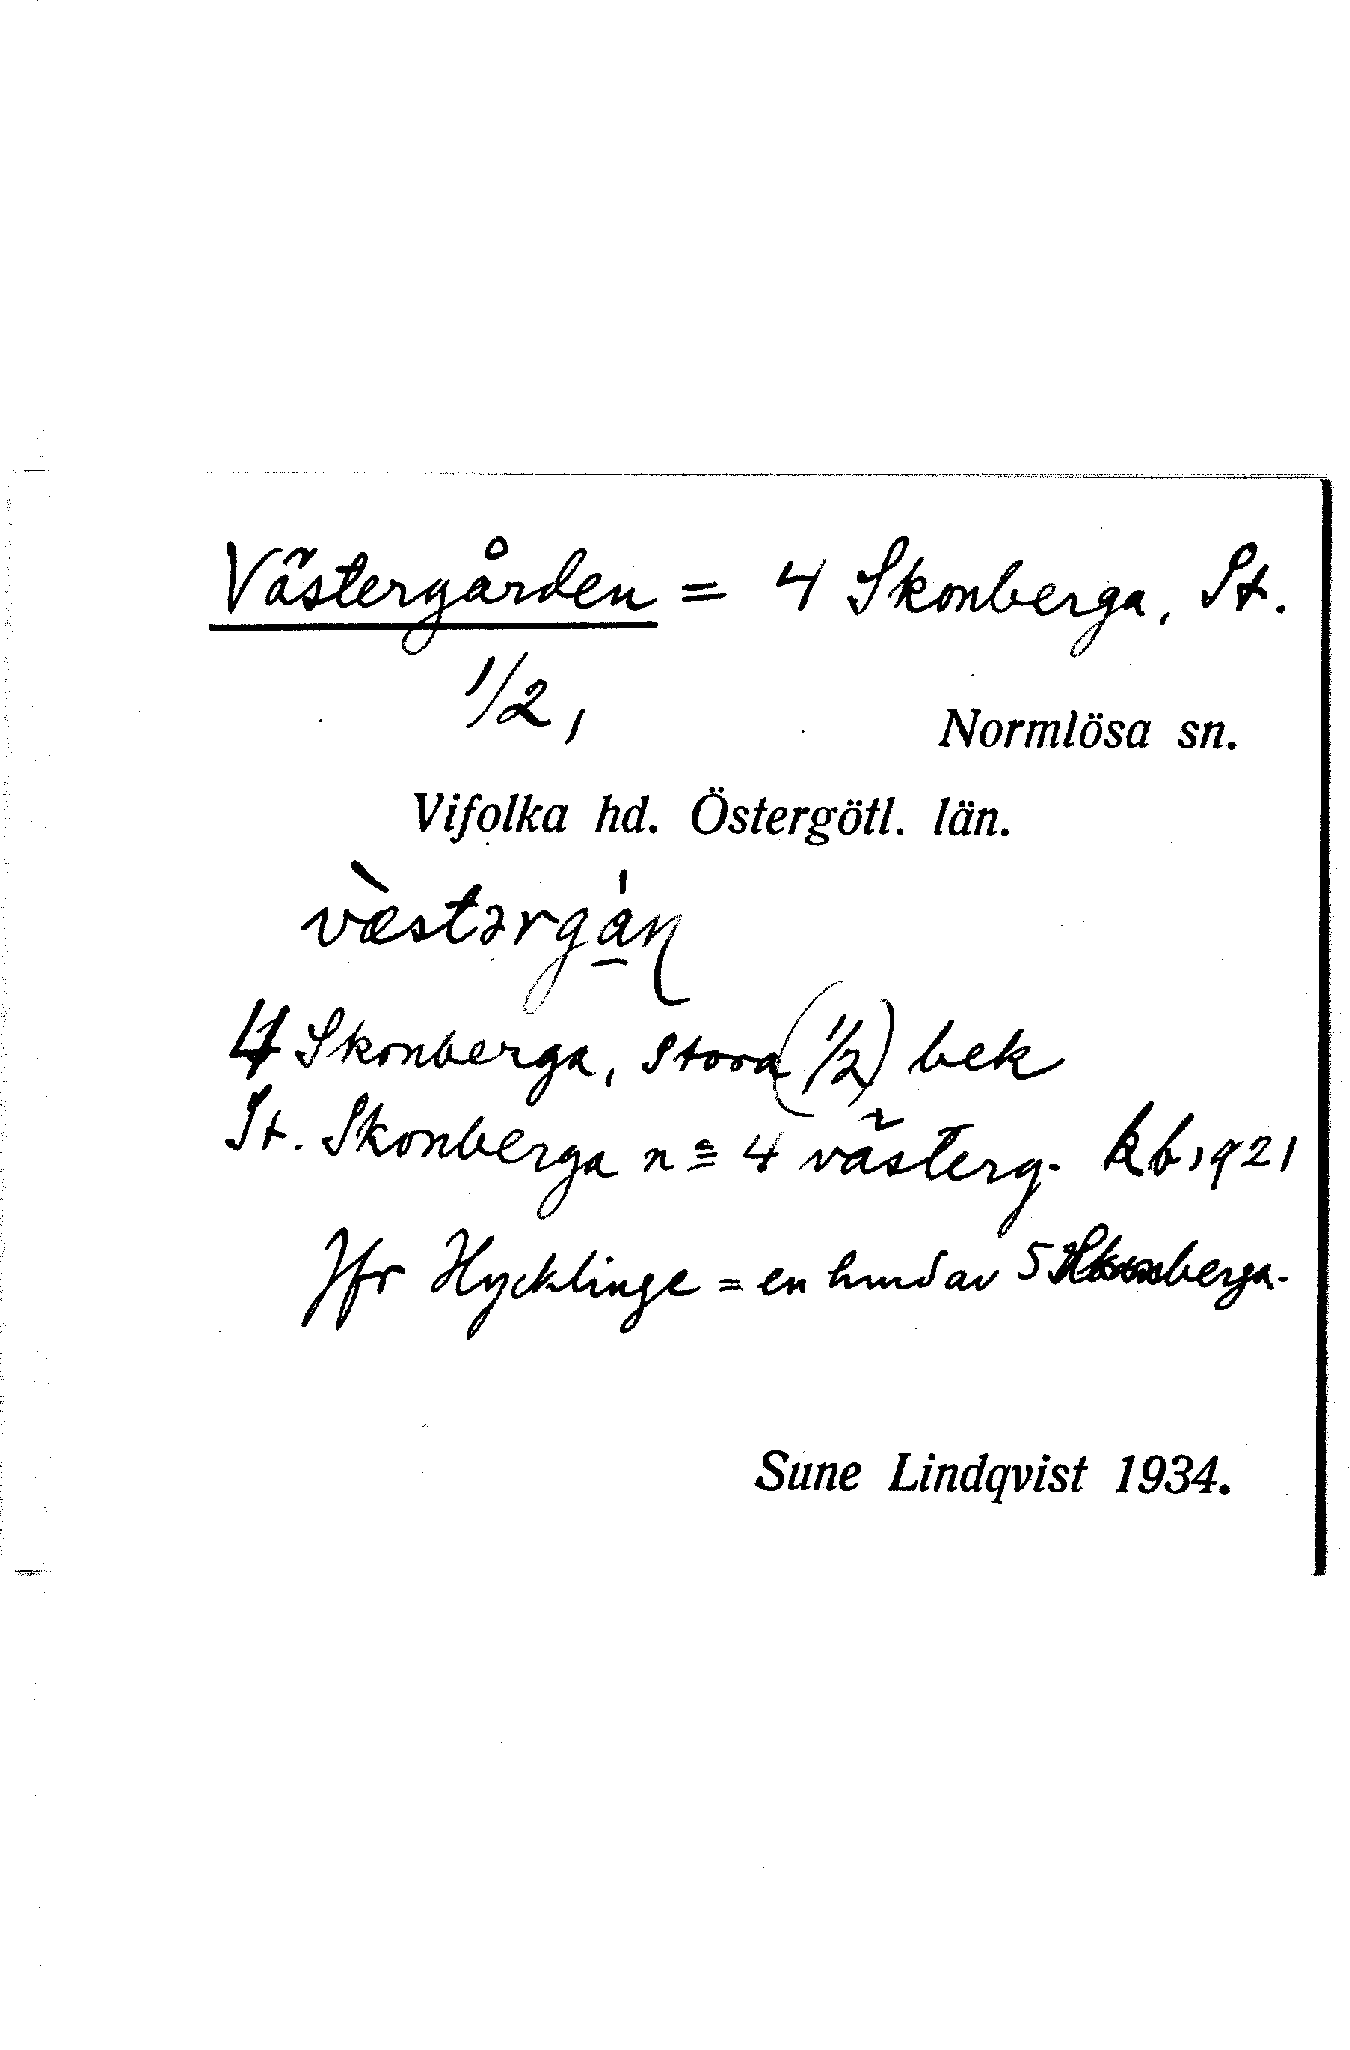 Västergården = 4 Skonberga, St.
1/2,
Normlösa sn.
Vifolka hd. Östergötl. län.
væ̀stərga̲̍ɳ
4 Skonberga, Stora (1/2) bek
St. Skonberga n:o 4 västerg. kb 1921
Jfr Hycklinge = en hmd av 5 Skonberga.
Sune Lindqvist 1934.